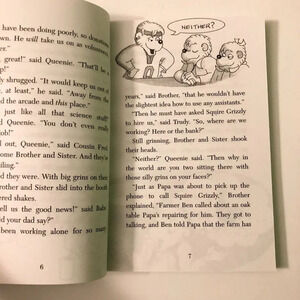 have been doing poorly, so donations
own. He will take us as volunteers
great!" said Queenie. "That'll be a
y shrugged. "It would keep us out of
, at least," he said. "Away from the
d the arcade and this place."
just like all that science stuff
Queenie. "You don't even really
job!"
out, Queenie," said Cousin Fred.
ome Brother and Sister. And they're
iling."
ed they were. With big grins on their
rother and Sister slid into the booth
ered shakes.
ell us the good news!" said Babs
d your dad say?"
been working alone for so many
6
NEITHER?
years," said Brother, "that he wouldn't have
the slightest idea how to use any assistants."
"Then he must have asked Squire Grizzly
to hire us," said Trudy. "So, where are we
working? Here or the bank?"
Still grinning, Brother and Sister shook
their heads.
"Neither?" Queenie said. "Then why in
the world are you two sitting there with
those silly grins on your faces?"
"Just as Papa was about to pick up the
phone to call Squire Grizzly," Brother
explained, "Farmer Ben called about an oak
table Papa's repairing for him. They got to
talking, and Ben told Papa that the farm has
7